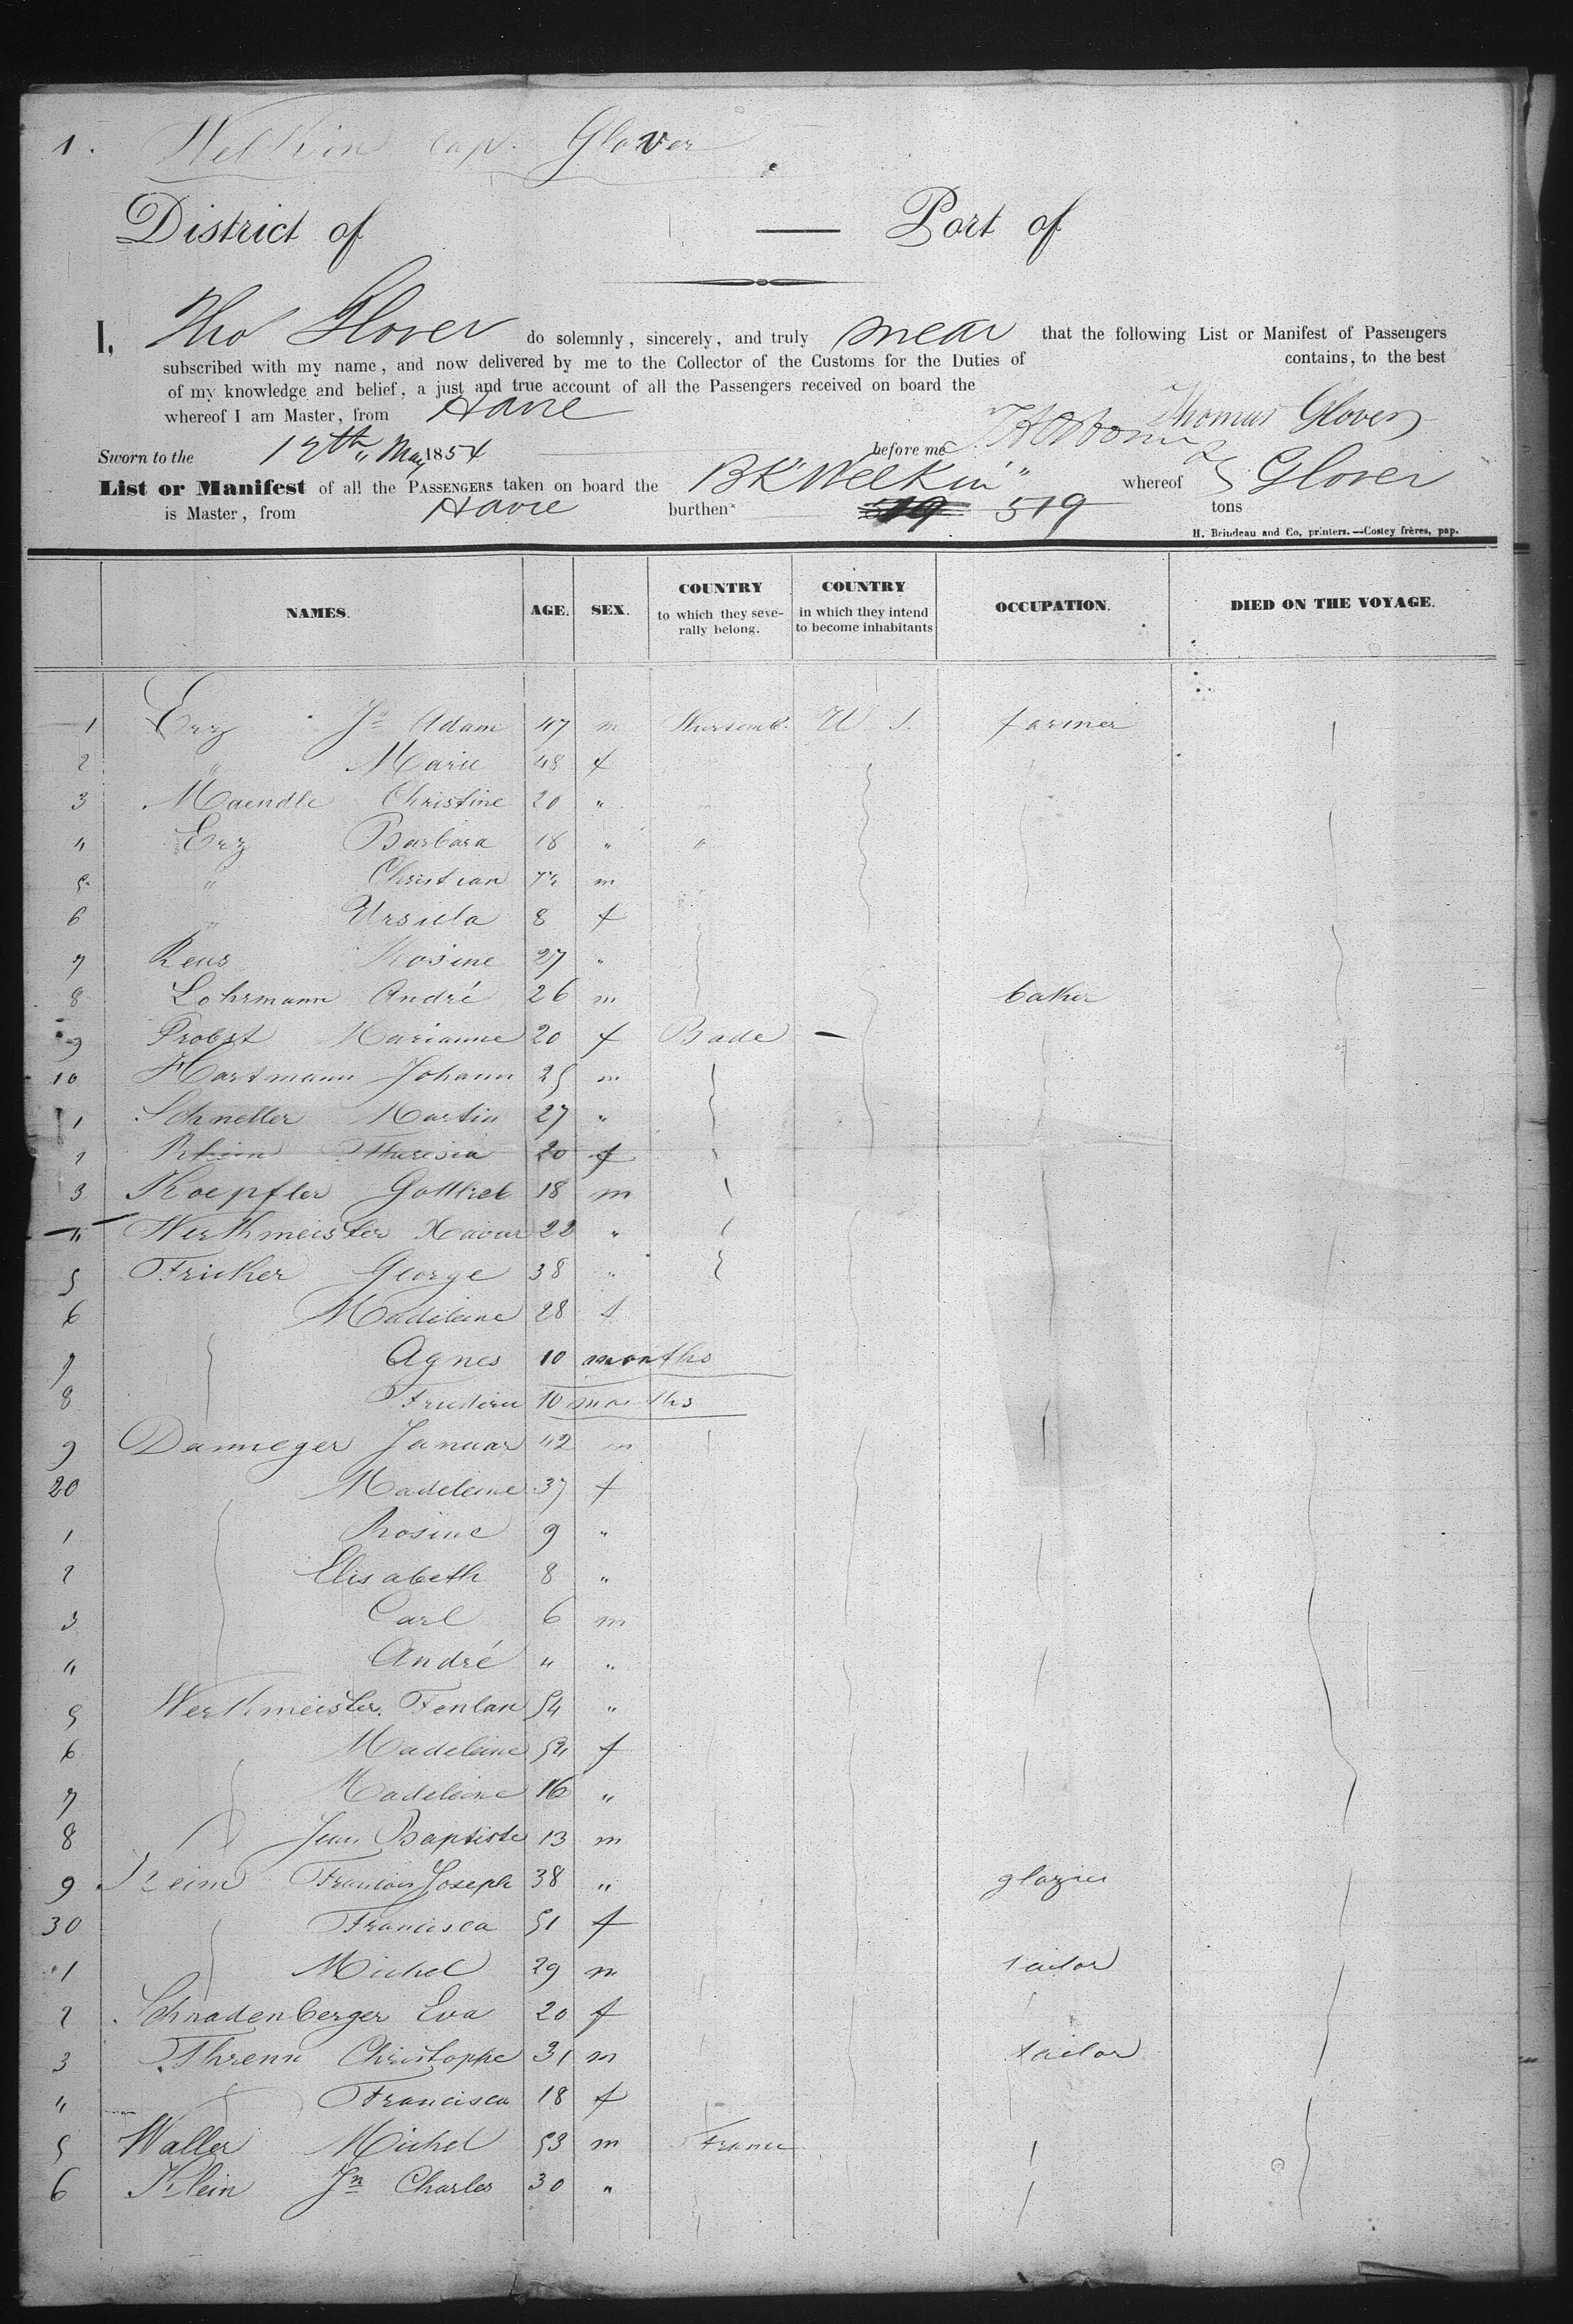 1. Welkin Cap. Glover
District of — Port of
I, Tho Glover do solemnly, sincerely, and truly swear that the following List or Manifest of Passengers
subscribed with my name, and now delivered by me to the Collector of the Customs for the Duties of contains, to the best
of my knowledge and belief, a just and true account of all the Passengers received on board the
whereof I am Master, from Havre Thomas Glover
Sworn to the 12th May 1854 before me
List or Manifest of all the PASSENGERS taken on board the BK "Welkin" whereof T Glover
is Master, from Havre burthen 519 519 tons
H. Brindeau and Co, printers.—Costey frères, pap.
NAMES. AGE. SEX. COUNTRY to which they severally belong. COUNTRY in which they intend to become inhabitants OCCUPATION. DIED ON THE VOYAGE.
1 Erz Jn Adam 47 m Wurtemb. U S. farmer
2 " Marie 48 f
3 Maendle Christine 20 "
4 Erz Barbara 18 " "
5 " Christian m
6 " Ursula 8 f
7 Reus Rosine 27 "
8 Lohrmann André 26 m baker
9 Probst Marianne 20 f Bade —
10 Hartmann Johann 25 m
1 Schneller Martin 27 "
2 Rheim Theresia 20 f
3 Koepfler Gottlieb 18 m
4 Werthmeister Xavier 22 "
5 Fricker George 38 "
6 Madeleine 28 f
7 Agnes 10 months
8 10 months
9 Danneger Januar 42 m
20 Madeleine 37 f
1 Rosine 9 "
2 Elisabeth 8 "
3 Carl 6 m
4 André 4 "
5 Werthmeister 54 "
6 Madeleine 54 f
7 Madeleine 16 "
8 Jean Baptiste 13 m
9 Reim Francois Joseph 38 " glazier
30 Francisca 51 f
1 Michel 29 m tailor
2 Schnadenberger Eva 20 f
3 Threnn Christophe 31 m tailor
4 Francisca 18 f
5 Waller Michel 53 m France
6 Klein Jn Charles 30 "